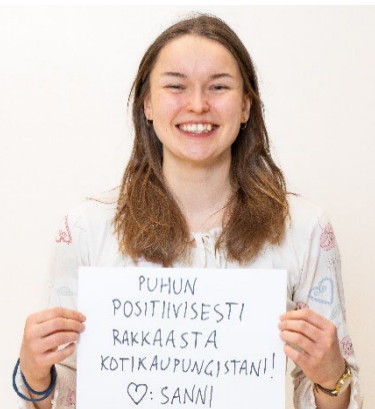 PUHUN
POSITIIVISESTI
RAKKAASTA
KOTIKAUPUNGISTANI!
♡: SANNI